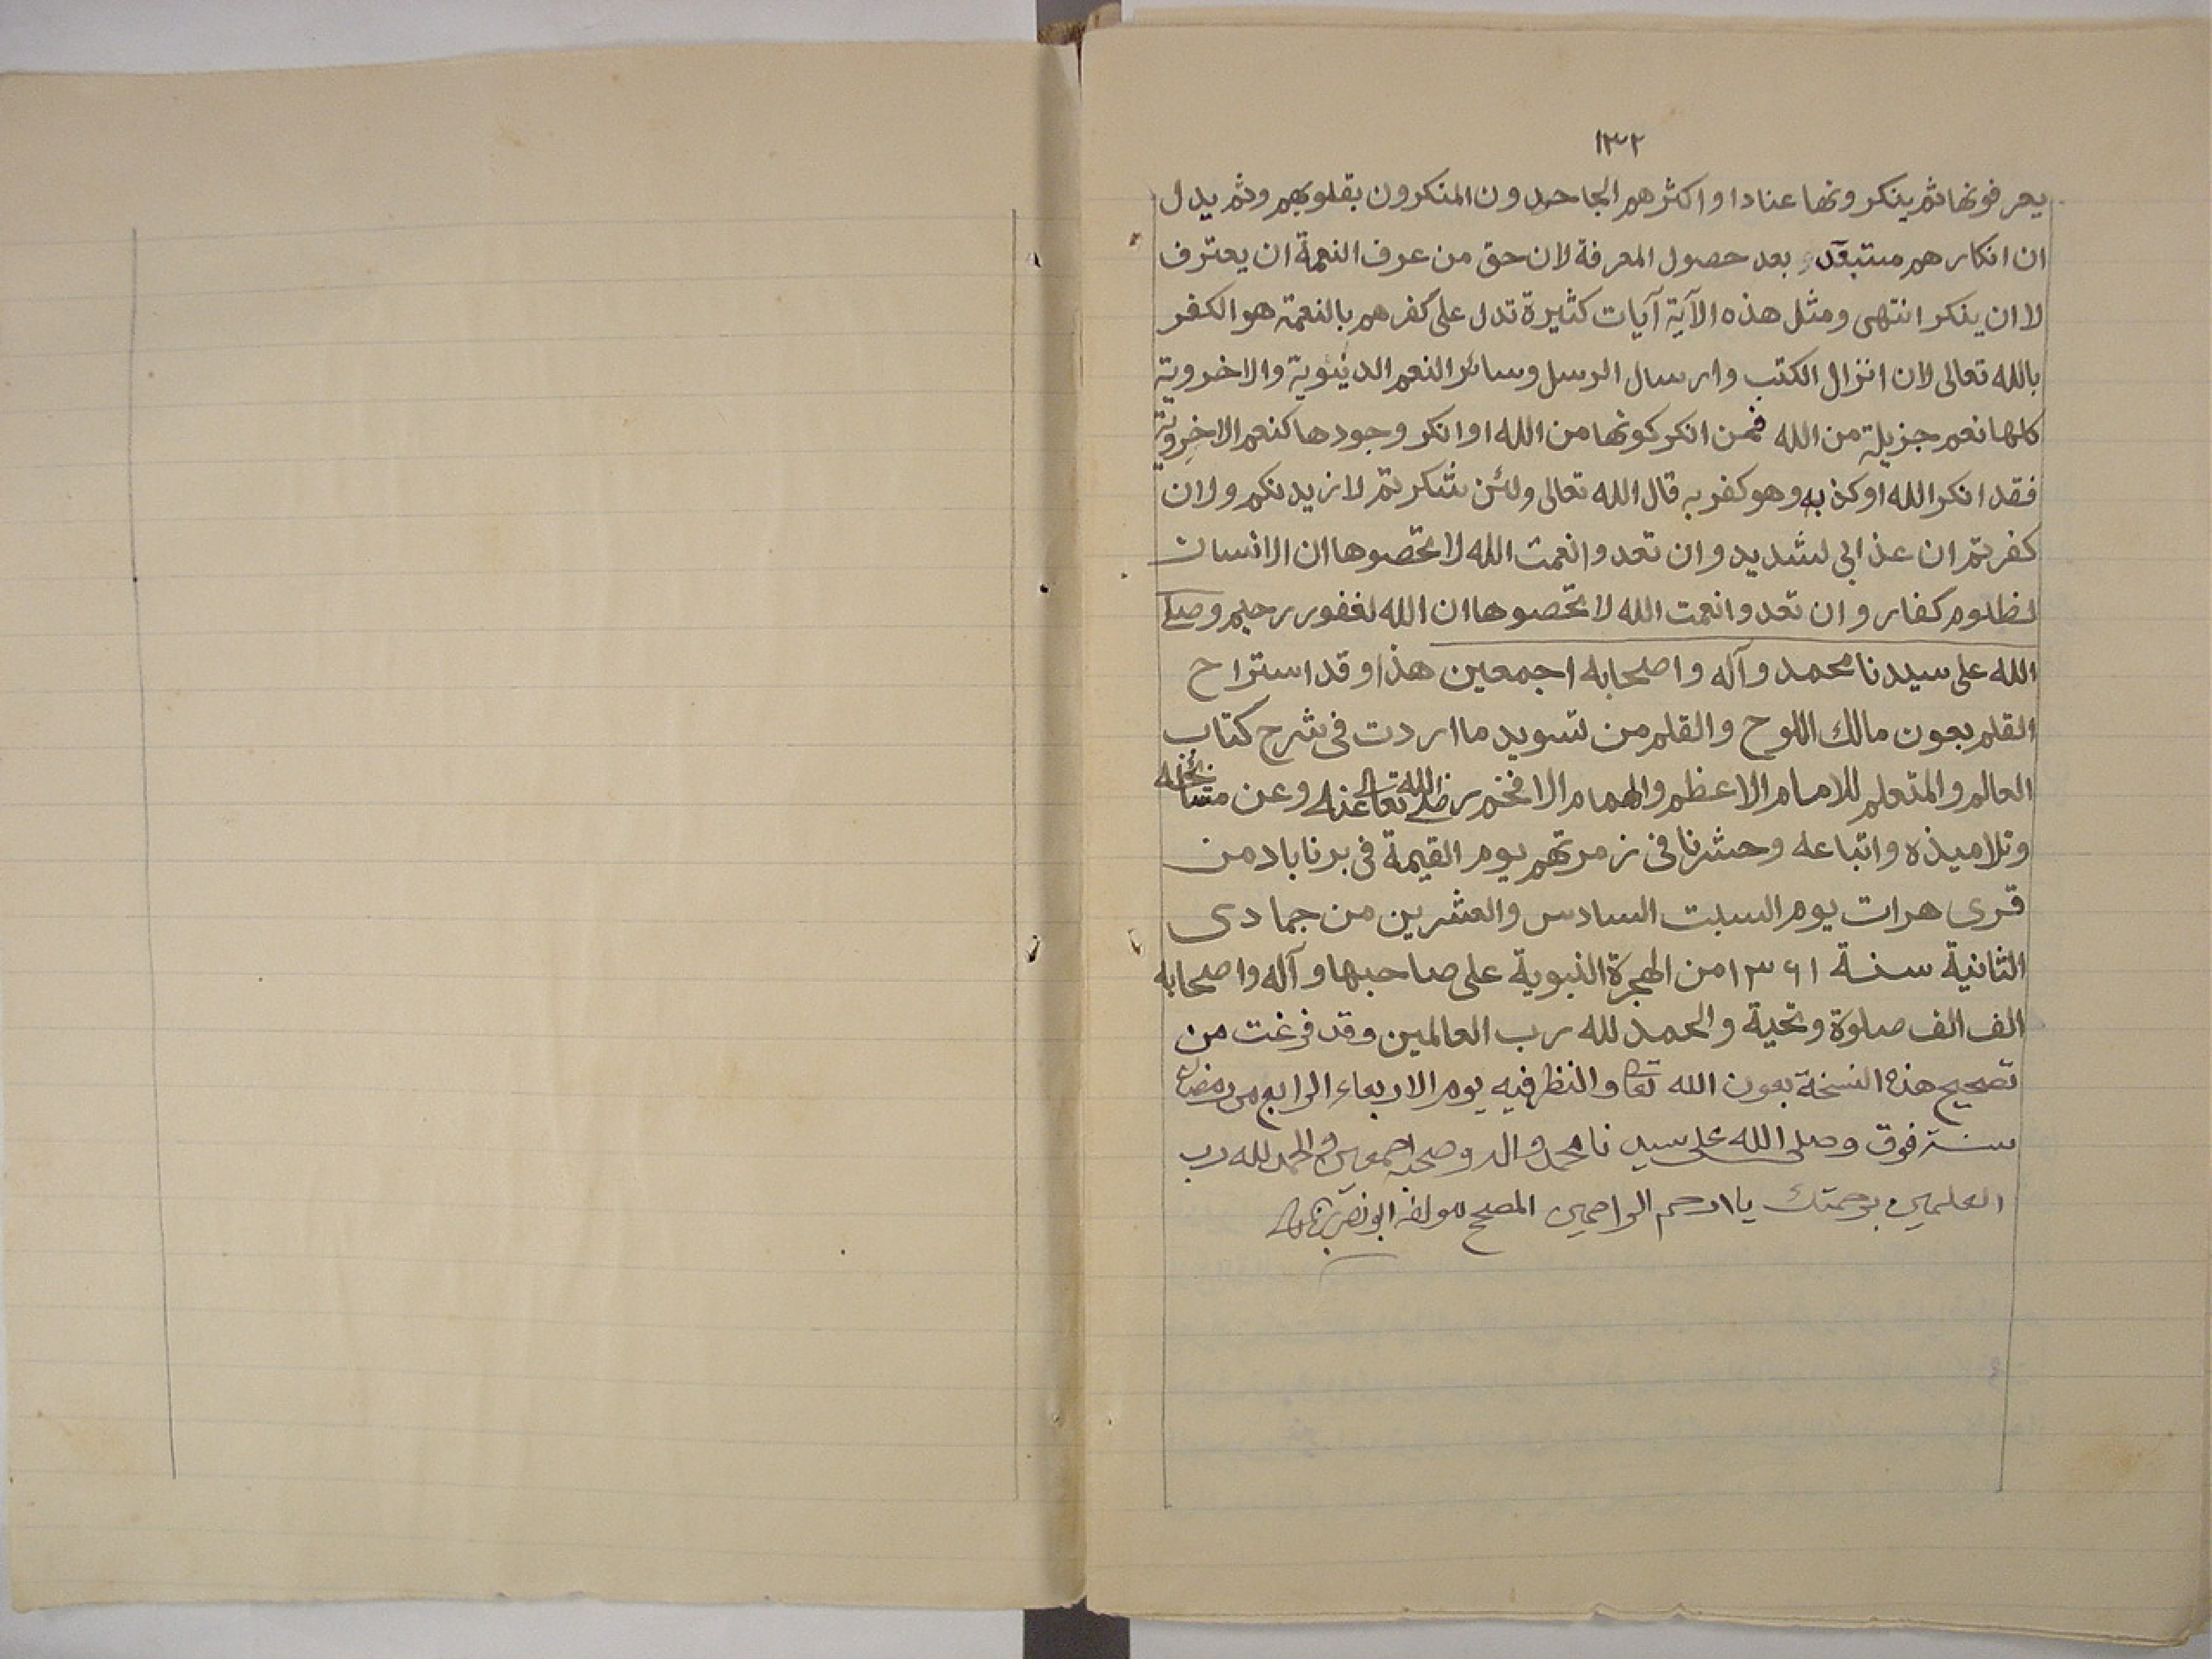 ١٣٢
يعرفونها ثم ينكرونها عنادا واكثرهم الجاحدون المنكرون بقلوبهم وثم يدل
ان انكارهم مستبعد بعد حصول المعرفة لان حق من عرف النعمة ان يعترف
لا ان ينكر انتهى ومثل هذه الآية آيات كثيرة تدل على كفرهم بالنعمة هو الكفر
بالله تعالى لان انزال الكتب وارسال الرسل وسائر النعم الدنيوية والاخروية
كلها نعم جزيلة من الله فمن انكر كونها من الله او انكر وجودها كنعم الاخروية
فقد انكر الله او كذبه وهو كفر به قال الله تعالى ولئن شكرتم لازيدنكم ولان
كفرتم ان عذابي لشديد وان تعدوا نعمت الله لا تحصوها ان الانسان
لظلوم كفار وان تعدوا نعمت الله لا تحصوها ان الله لغفور رحيم وصلى
الله على سيدنا محمد وآله واصحابه اجمعين هذا وقد استراح
القلم بعون مالك اللوح والقلم من تسويد ما اردت في شرح كتاب
العالم والمتعلم للامام الاعظم والهمام الافخم رضى الله تعالى عنه وعن مشائخه
وتلاميذه واتباعه وحشرنا في زمرتهم يوم القيمة في برناباد من
قرى هرات يوم السبت السادس والعشرين من جمادى
الثانية سنة ١٣٦١ من الهجرة النبوية على صاحبها وآله واصحابه
الف الف صلوة وتحية والحمد لله رب العالمين وقد فرغت من
تصحيح هذه النسخة بعون الله تعالى والنظر فيه يوم الاربعاء الرابع من رمضان
سنة فوق وصلى الله على سيدنا محمد واله وصحبه اجمعين والحمد لله رب
العلمين برحمتك يا ارحم الراحمين المصحح مولفه ابو نصر